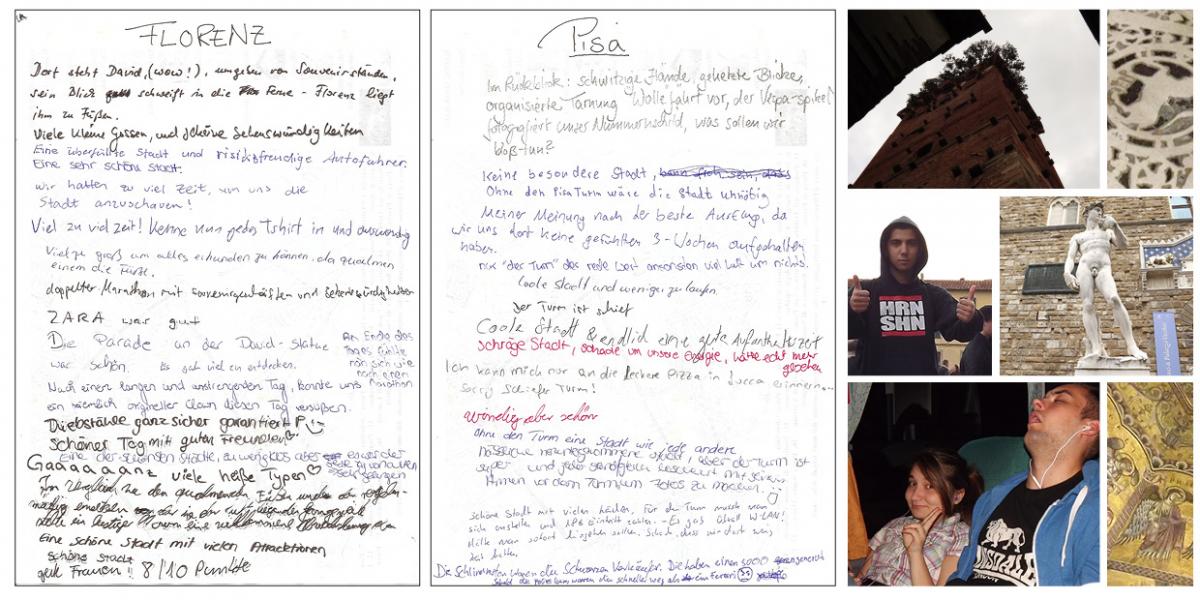 FLORENZ
Dort steht David, (wow!), umgeben von Souvenirständen,
sein Blick schweift in die Ferne - Florenz liegt
ihm zu Füßen.
Viele kleine Gassen, und schöne Sehenswürdigkeiten
Eine überfüllte Stadt und risikofreudige Autofahrer.
Eine sehr schöne Stadt.
wir hatten zu viel Zeit, um uns die
Stadt anzuschauen!
Viel zu viel Zeit! Kenne nun jedes Tshirt in und auswendig
Viel zu groß um alles erkunden zu können. da qualmen
einem die Füße.
doppelter Marathon mit und Sehenswürdigkeiten
ZARA war gut
Die Parade an der David-Statue
war schön. Es gab viel zu entdecken.
Am Ende des
Tages fühlte
man sich wie
nach einem
Marathon
Nach einem langen und anstrengenden Tag, konnte uns
ein ziemlich origineller Clown diesen Tag versüßen.
Diebstähle ganz sicher garantiert :P
Schöner Tag mit guten Freunden
Eine der schönsten Städte, zu wenig los aber
Gaaaaaaanz viele heiße Typen
Im Vergleich zu den qualmenden Füßen
Eine schöne Stadt mit vielen Attraktionen
schöne Stadt
geile Frauen!! 8/10 Punkte
Pisa
Im Rückblick: schwitzige Hände, gehetzte Blicke,
organisierte Tarnung Wolle fährt vor, der Vespa-spitzel
fotografiert unser Nummernschild, was sollen wir
bloß tun?
Keine besondere Stadt,
Ohne den Pisa Turm wäre die Stadt unnötig
Meiner Meinung nach der beste Ausflug, da
wir uns dort keine gefühlten 3-Wochen aufgehalten
haben.
nur "der Turm" der rede wert ansonsten viel halt um nichts.
Coole Stadt und weniger zu laufen
Der Turm ist schief
Coole Stadt & endlich eine gute Aufenthaltszeit
schräge Stadt, schade um unsere Energie, hätte echt mehr
gesehen
Ich kann mich nur an die leckere Pizza in Lucca erinnern...
Sorry Schiefer Turm!
windig aber schön
Ohne den Turm eine Stadt wie jede andere
aber der Turm ist
super und jeder
Armen vor dem Turm um Fotos zu machen.
Schöne Stadt mit vielen Läden. Für den Turm musste man
sich anstellen und 18€ Eintritt zahlen. - Es gab überall W-LAN!
Hätte man sofort hingehen sollen. Schade, dass wir dort wenig
Zeit hatten.
Die Schlimmsten waren die Schwarzen Verkäufer. Die haben einen SOOO
Sobald die Polizei kam waren die schneller weg als ein Ferrari
HRN
SHN
LONSDALE